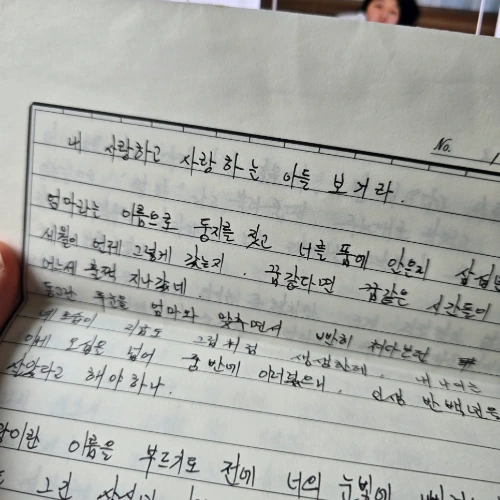 No. 1
내 사랑하고 사랑하는 아들 보거라.
엄마라는 이름으로 둥지를 짓고 너를 품에 안은지 삼십년
세월이 언제 그렇게 갔는지. 꿈같다면 꿈같은 시간들이
어느새 훌쩍 지나갔네.
동그란 엄마와 맞추면서 빤히 쳐다보던
네 모습이 그림처럼 생생한데. 내 나이는
이제 오십을 넘어 중반에 이르렀으니, 인생 반백년을
살았다고 해야 하나.
이란 이름을 부르기도 전에 너의 눈빛에
그런